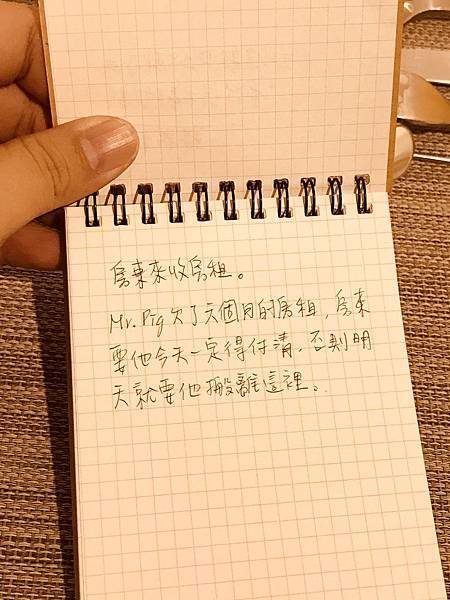 房東來收房租。
Mr. Pig 欠了六個月的房租,房東
要他今天一定得付清,否則明
天就要他搬離這裡。